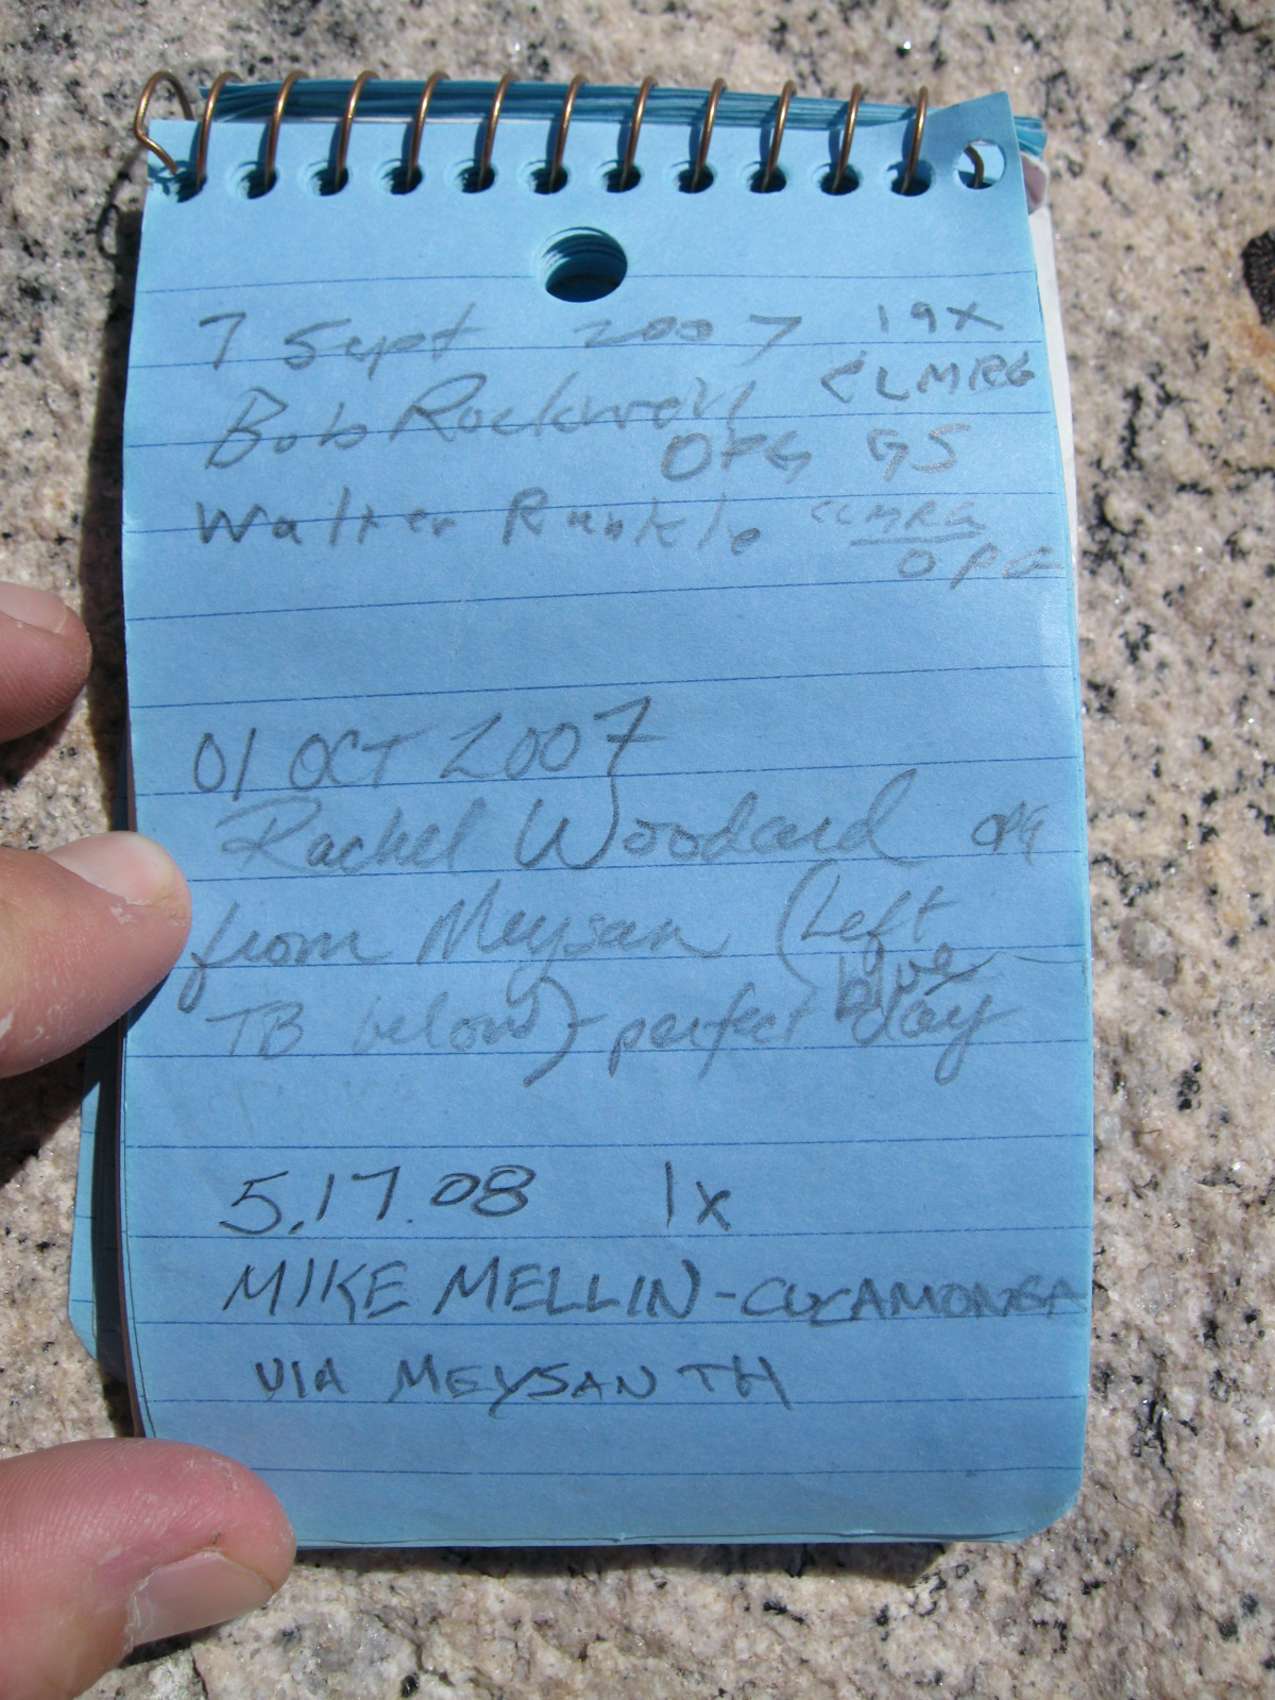 7 Sept 2007 19X
Bob Rockwell CLMRG
OPG GS
Walter Runkle CLMRG
OPG
01 OCT 2007
Rachel Woodard OPG
from Meysan (Left
TB below) - perfect blue day
5.17.08 1x
MIKE MELLIN - CUCAMONGA
VIA MEYSAN TH